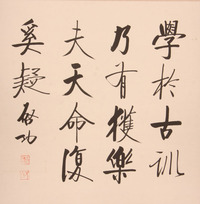 學於古訓
乃有獲樂
夫天命復
奚疑 啟功